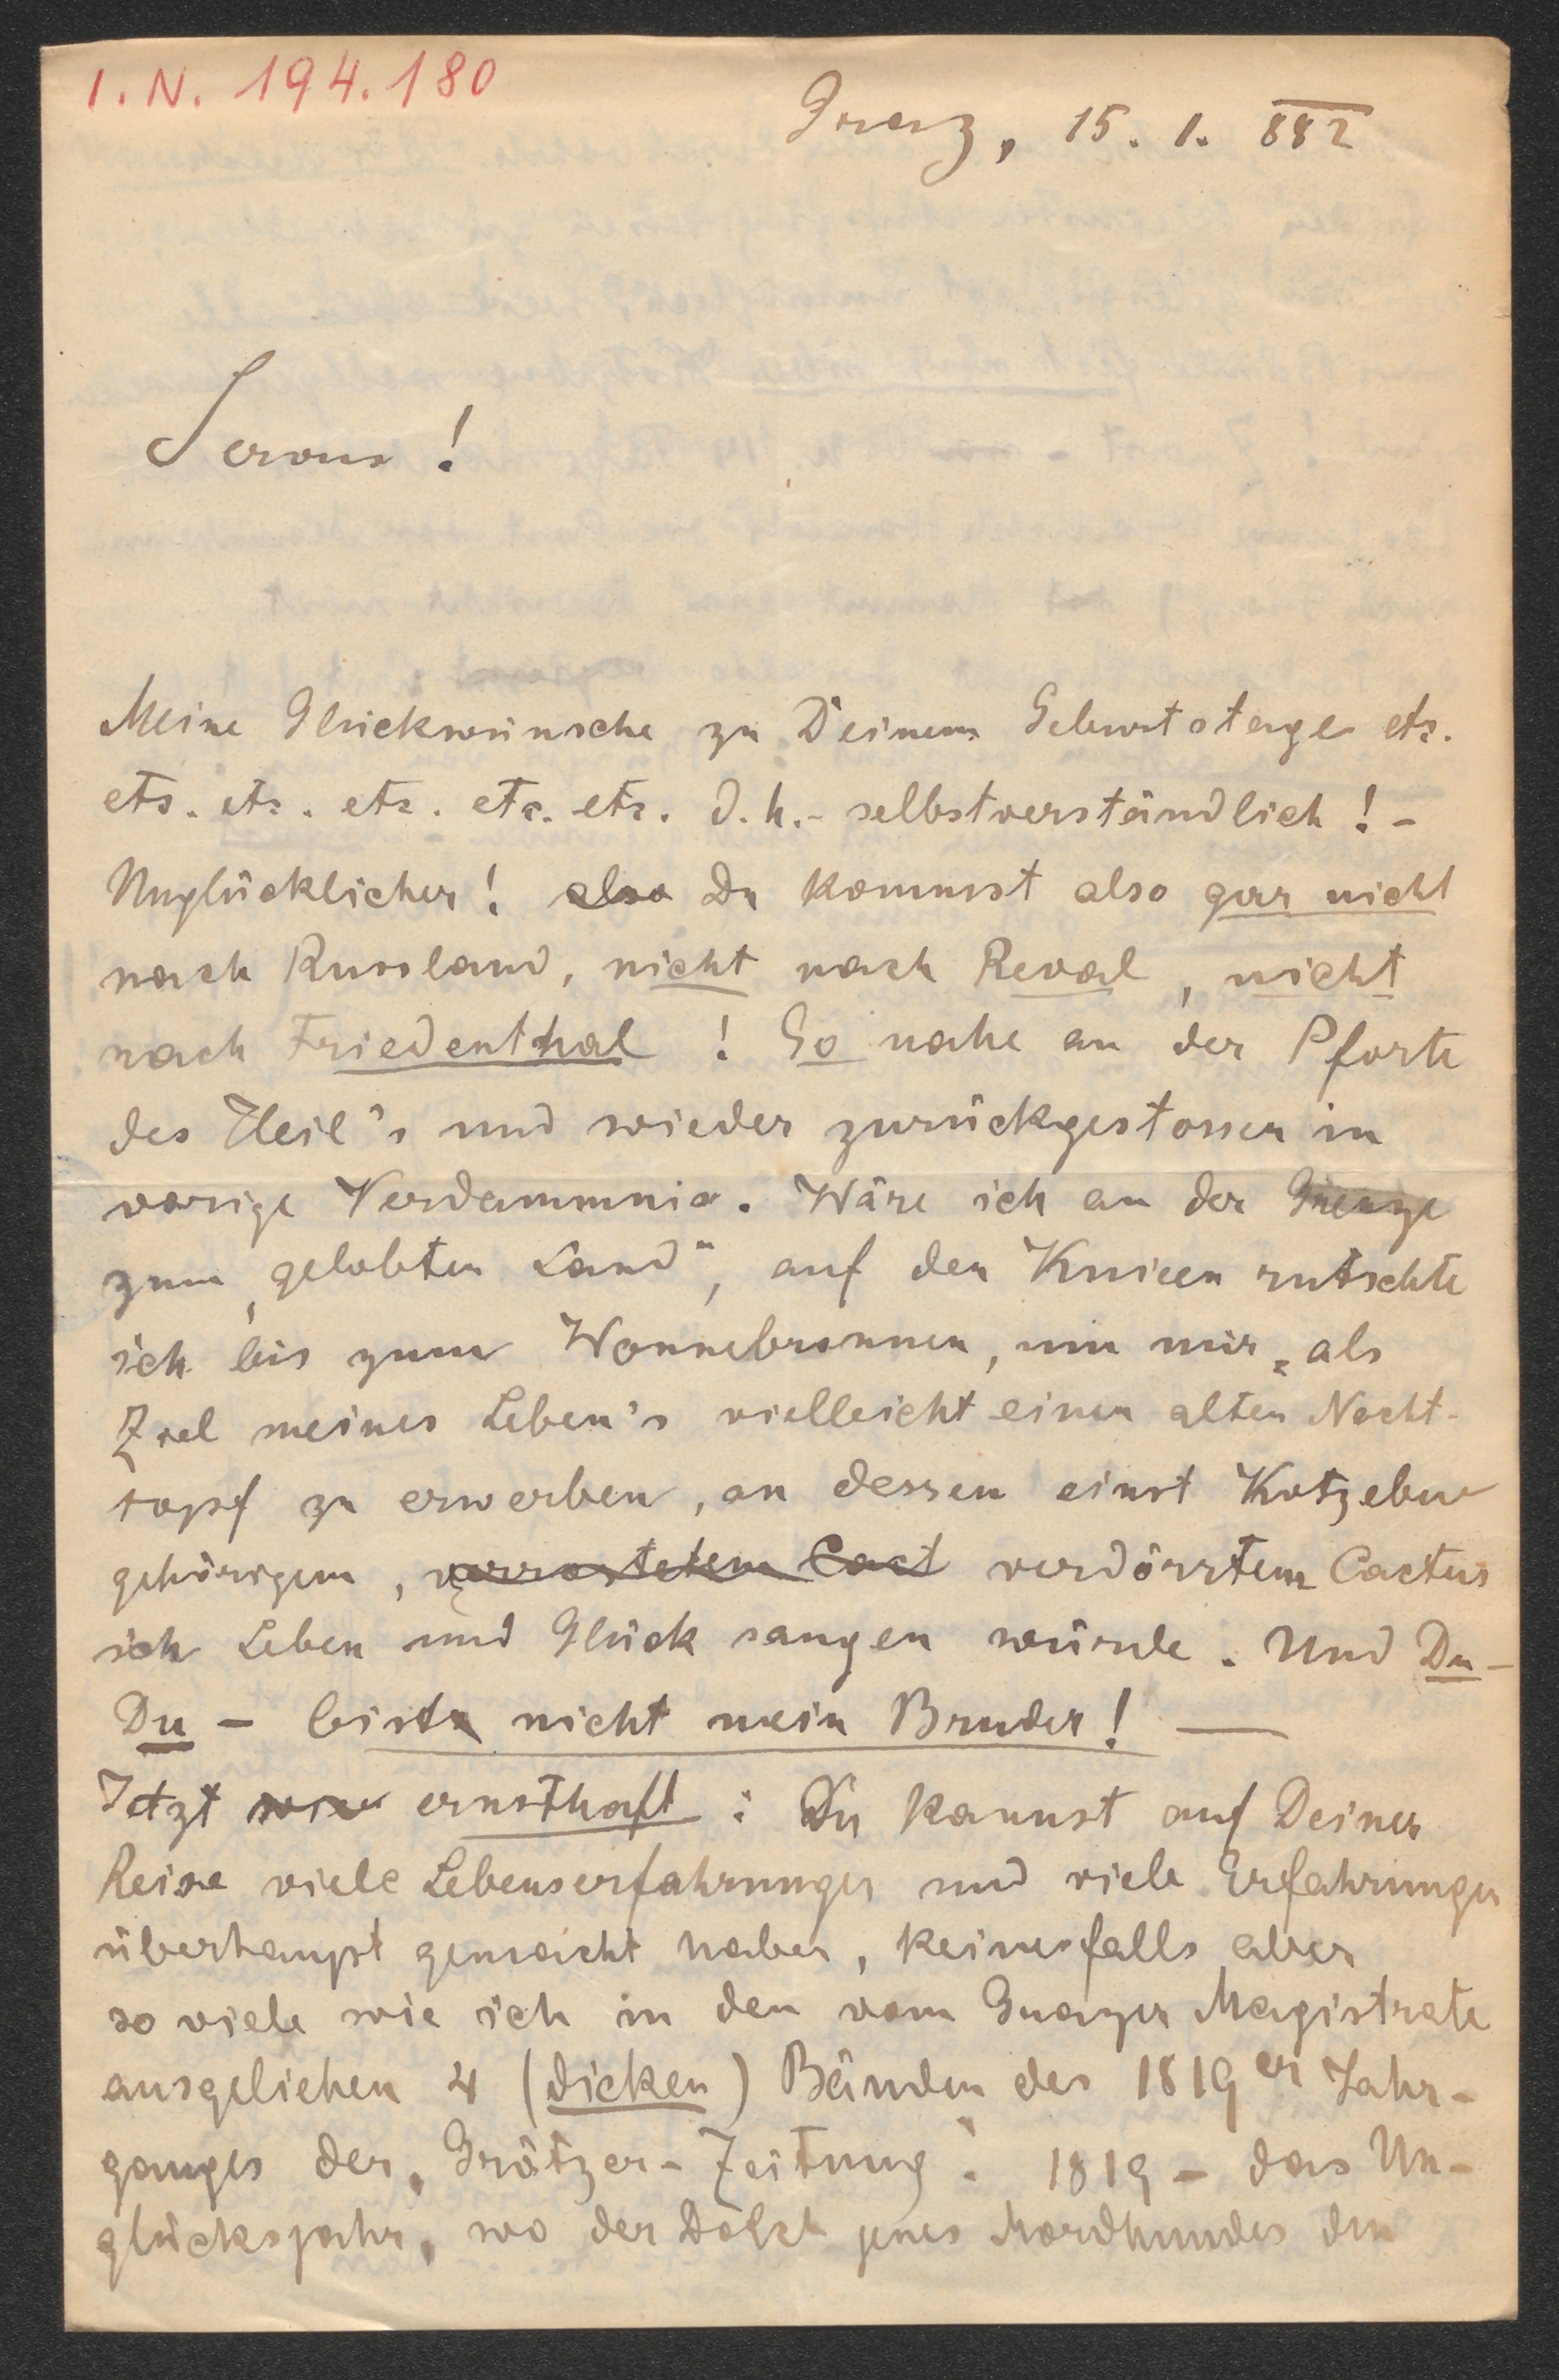 I.N. 194.180
Graz, 15. 1. 882
Servus!
Meine Glückwünsche zu Deinem Geburtstage etc.
etc. etc. etc. etc. etc. d.h.- selbstverständlich! -
Unglücklicher! also Du kommst also gar nicht
nach Russland, nicht nach Reval, nicht
nach Friedenthal! So nahe an der Pforte
des Heil's und wieder zurückgestossen in
vorige Verdammnis. Wäre ich an der Grenze
zum „gelobten Land", auf den Knieen rutschte
ich bis zum Wonnebronnen, um mir, als
Ziel meines Leben's vielleicht einen alten Nacht-
topf zu erwerben, an dessen einst Kotzebue
gehörigem, verrostetem Cact verdörrtem Cactus
ich Leben und Glück saugen würde. Und Du -
Du - bist nicht mein Bruder! —
Jetzt ernsthaft: Du kannst auf Deiner
Reise viele Lebenserfahrungen und viele Erfahrungen
überhaupt gemacht haben, keinesfalls aber
so viele wie ich in den vom Grazer Magistrate
ausgeliehen 4 (dicken) Bänden des 1819er Jahr-
ganges der „Grätzer-Zeitung". 1819 - das Un-
glücksjahr, wo der Dolch jenes Mordhundes den